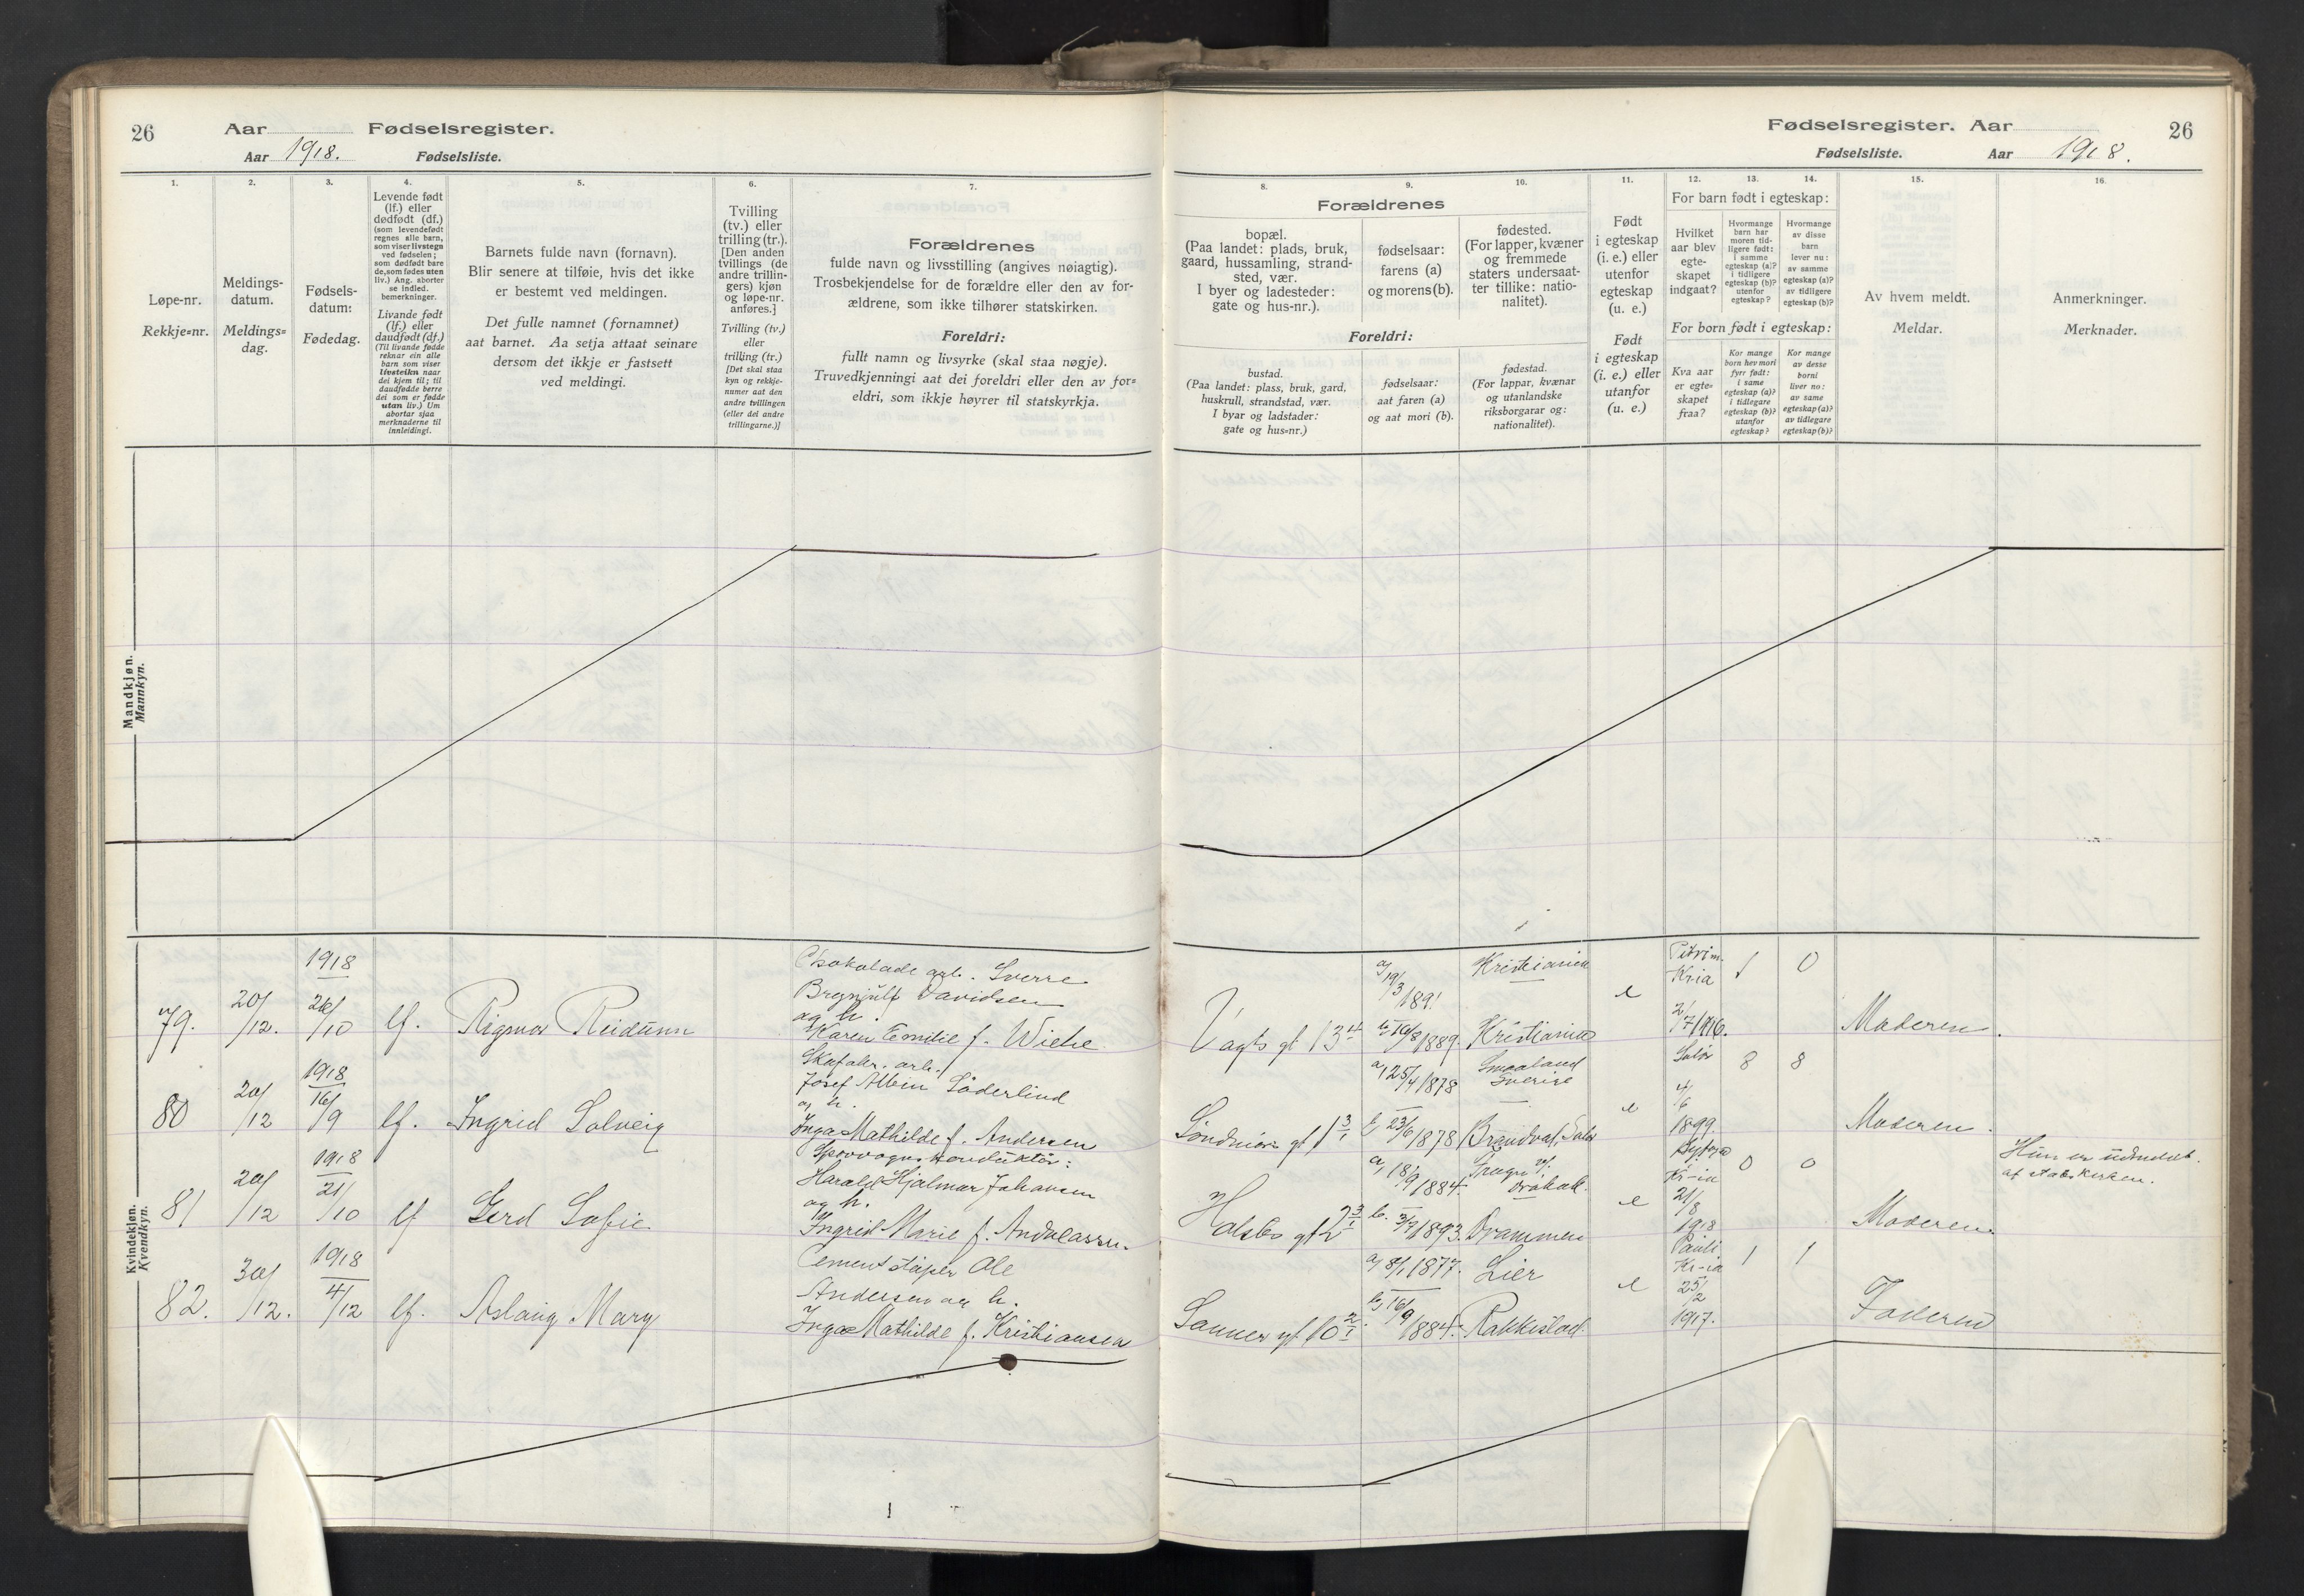 26
Aar
Fødselsregister.
Aar 1918.
Fødselsliste.
1.
Løpe-nr.
Rekkje=nr.
2.
Meldings-
datum.
Meldings=
dag.
3.
Fødsels-
datum:
Fødedag.
4.
Levende født
(lf.) eller
dødfødt (df.)
(som levendefødt
regnes alle barn,
som viser livstegn
ved fødselen;
som dødfødt bare
de, som fødes uten
liv.) Ang. aborter
se indled.
bemerkninger.
Livande født
(lf.) eller
daudfødt (df.)
(Til livande fødde
reknar ein alle
barn som viser
livsteikn naar
dei kjem til; til
daudfødde berre
dei som er fødde
utan liv.) Um
abortar sjaa
merknaderne til
innleidingi.
5.
Barnets fulde navn (fornavn).
Blir senere at tilføie, hvis det ikke
er bestemt ved meldingen.
Det fulle namnet (fornamnet)
aat barnet. Aa setja attaat seinare
dersom det ikkje er fastsett
ved meldingi.
6.
Tvilling
(tv.) eller
trilling (tr.).
[Den anden
tvillings (de
andre trillin-
gers) kjøn
og løpe-nr.
anføres.]
Tvilling (tv.)
eller
trilling (tr.)
[Det skal staa
kyn og rekkje-
numer aat den
andre tvillingen
(eller dei andre
trillingarne.)]
7.
Forældrenes
fulde navn og livsstilling (angives nøiagtig).
Trosbekjendelse for de forældre eller den av for-
ældrene, som ikke tilhører statskirken.
Foreldri:
fullt namn og livsyrke (skal staa nøgje).
Truvedkjenningi aat dei foreldri eller den av for=
eldri, som ikkje høyrer til statskyrkja.
Mandkjøn.
Mannkyn.
Kvindekjøn.
Kvendkyn.
79.
20/12.
1918
/10
lf.
Rigmor Reidunn
Chokolade arb. Sverre
Brynjulf Davidsen
og h.
Karen Emilie f. Wiehe
80
20/12
1918
16/9
lf.
Ingrid Solveig
arb.
Josef Albin Söderlind
og h.
Inga Mathilde f. Andersen
81
20/12
1918
21/10
lf
Gerd Sofie
Sporvogns konduktør:
Harald Hjalmar Johansen
og h.
Ingrid Marie f. Andreassen.
82.
30/12.
1918
4/12
lf.
Aslaug Mary
Cementstøper Ole
Andersen og h.
Inga Mathilde f. Kristiansen
Fødselsregister. Aar
26
Fødselsliste.
Aar 1918.
Forældrenes
8.
bopæl.
(Paa landet: plads, bruk,
gaard, hussamling, strand-
sted, vær.
I byer og ladesteder:
gate og hus-nr.).
Foreldri:
bustad.
(Paa landet: plass, bruk, gard,
huskrull, strandstad, vær.
I byar og ladstader:
gate og hus=nr.)
9.
fødselsaar:
farens (a)
og morens (b).
fødselsaar:
aat faren (a)
og aat mori (b).
10.
fødested.
(For lapper, kvæner
og fremmede
staters undersaat-
ter tillike: natio-
nalitet).
fødestad.
(For lappar, kvænar
og utanlandske
riksborgarar og:
nationalitet).
11.
Født
i egteskap
(i. e.) eller
utenfor
egteskap
(u. e.)
Født
i egteskap
(i. e.) eller
utanfor
(u. e.)
For barn født i egteskap:
For born født i egteskap:
12.
Hvilket
aar blev
egte-
skapet
indgaat?
Kva aar
er egte=
skapet
fraa?
13.
Hvormange
barn har
moren tid-
ligere født:
i samme
egteskap (a)?
i tidligere
egteskap (b)?
utenfor
egteskap?
Kor mange
born hev mori
fyrr født:
i same
egteskap (a)?
i tidlegare
egteskap (b)?
utanfor
egteskap?
14.
Hvormange
av disse
barn
lever nu:
av samme
egteskap (a)?
av tidligere
egteskap (b)?
Kor mange
av desse
borni
liver no:
av same
egteskap (a)?
av tidlegare
egteskap (b)?
15.
Av hvem meldt.
Meldar.
16.
Anmerkninger.
Merknader.
Vagts gt 13 4
a, 19/3 1891
b, 1889.
Kristiania
Kristiania
e
Kria
2/7 1916.
1
0
Moderen.
gt 1 3/1
a, 25/4 1878
b, 23/6 1878
Smaaland
Sverige
Brandval, Solør
e
Solør
4/6
1899.
8
8
Moderen.
gt 2 3/1
a, 18/9 1884.
b. 3/9 1893.
Drøbak.
Drammen
e
Kr-ia
21/8
1918
0
0
Moderen.
Hun er udmeldt.
af statskirken.
Sanner gt 10 2/1
a, 8/1 1877.
b, 16/9 1884.
Lier
Rakkestad.
e
Pauli
Kr-ia
25/2
1917.
1
1
Faderen